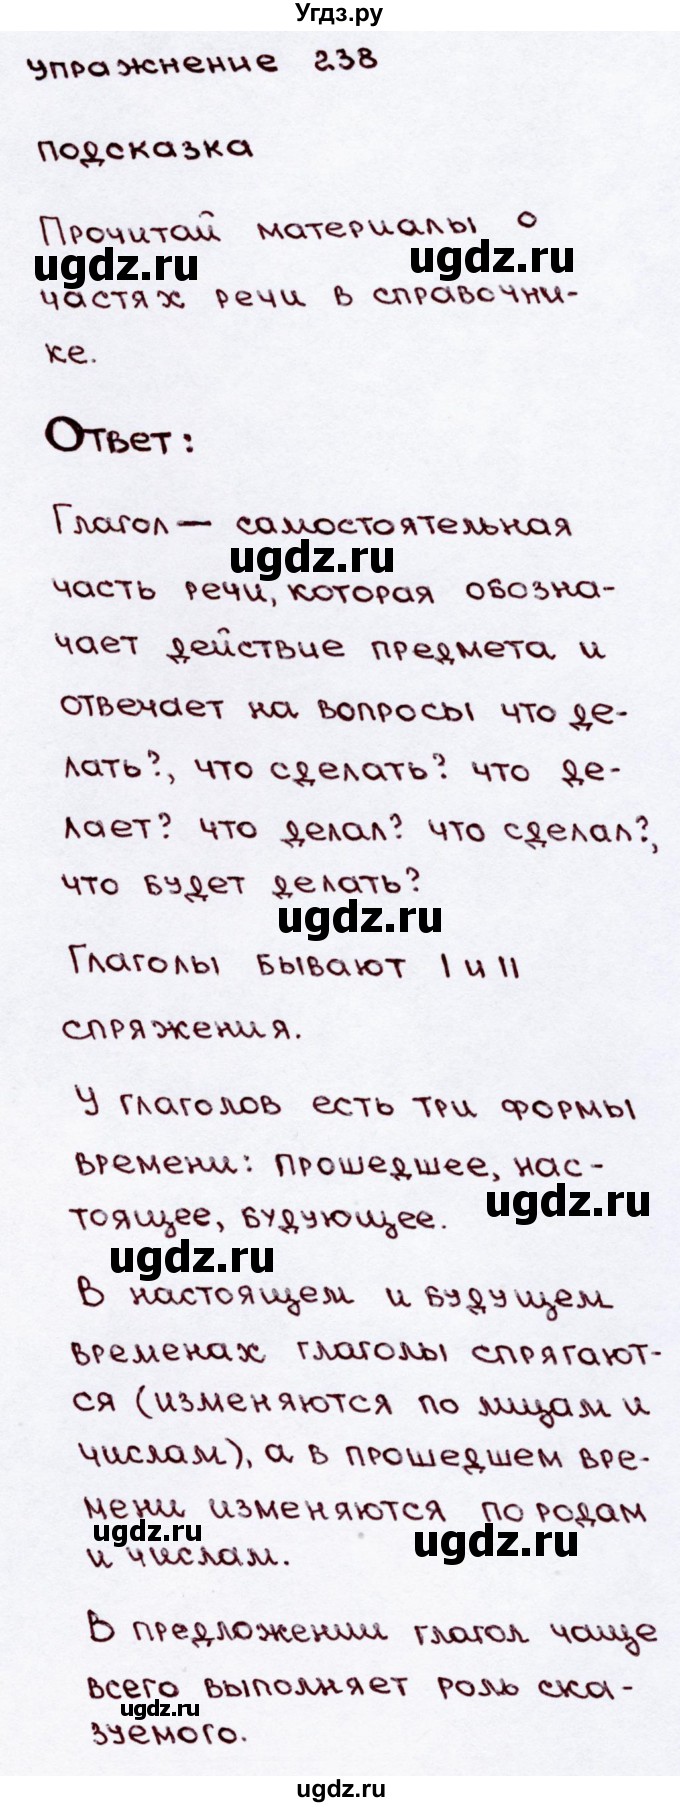 Угдз.ру
упражнение 238
подсказка
Прочитай материалы о
ugdz.ru ugdz.ru
частях речи в справочни-
ке.
Ответ:
Глагол — самостоятельная
ugdz.ru
часть речи, которая обозна-
чает действие предмета и
отвечает на вопросы что де-
лать?, что сделать? что де-
лает? что делал? что сделал?,
что будет делать?
ugdz.ru
Глаголы бывают I и II
спряжения.
У глаголов есть три формы
времени: прошедшее, нас-
ugdz.ru
тоящее, будующее.
ugdz.ru
В настоящем и будущем
временах глаголы спрягают-
ся (изменяются по лицам и
числам), а в прошедшем вре-
мени изменяются по родам
ugdz.ru ugdz.ru
и числам.
В предложении глагол чаще
всего выполняет роль ска-
ugdz.ru
зуемого.
ugdz.ru